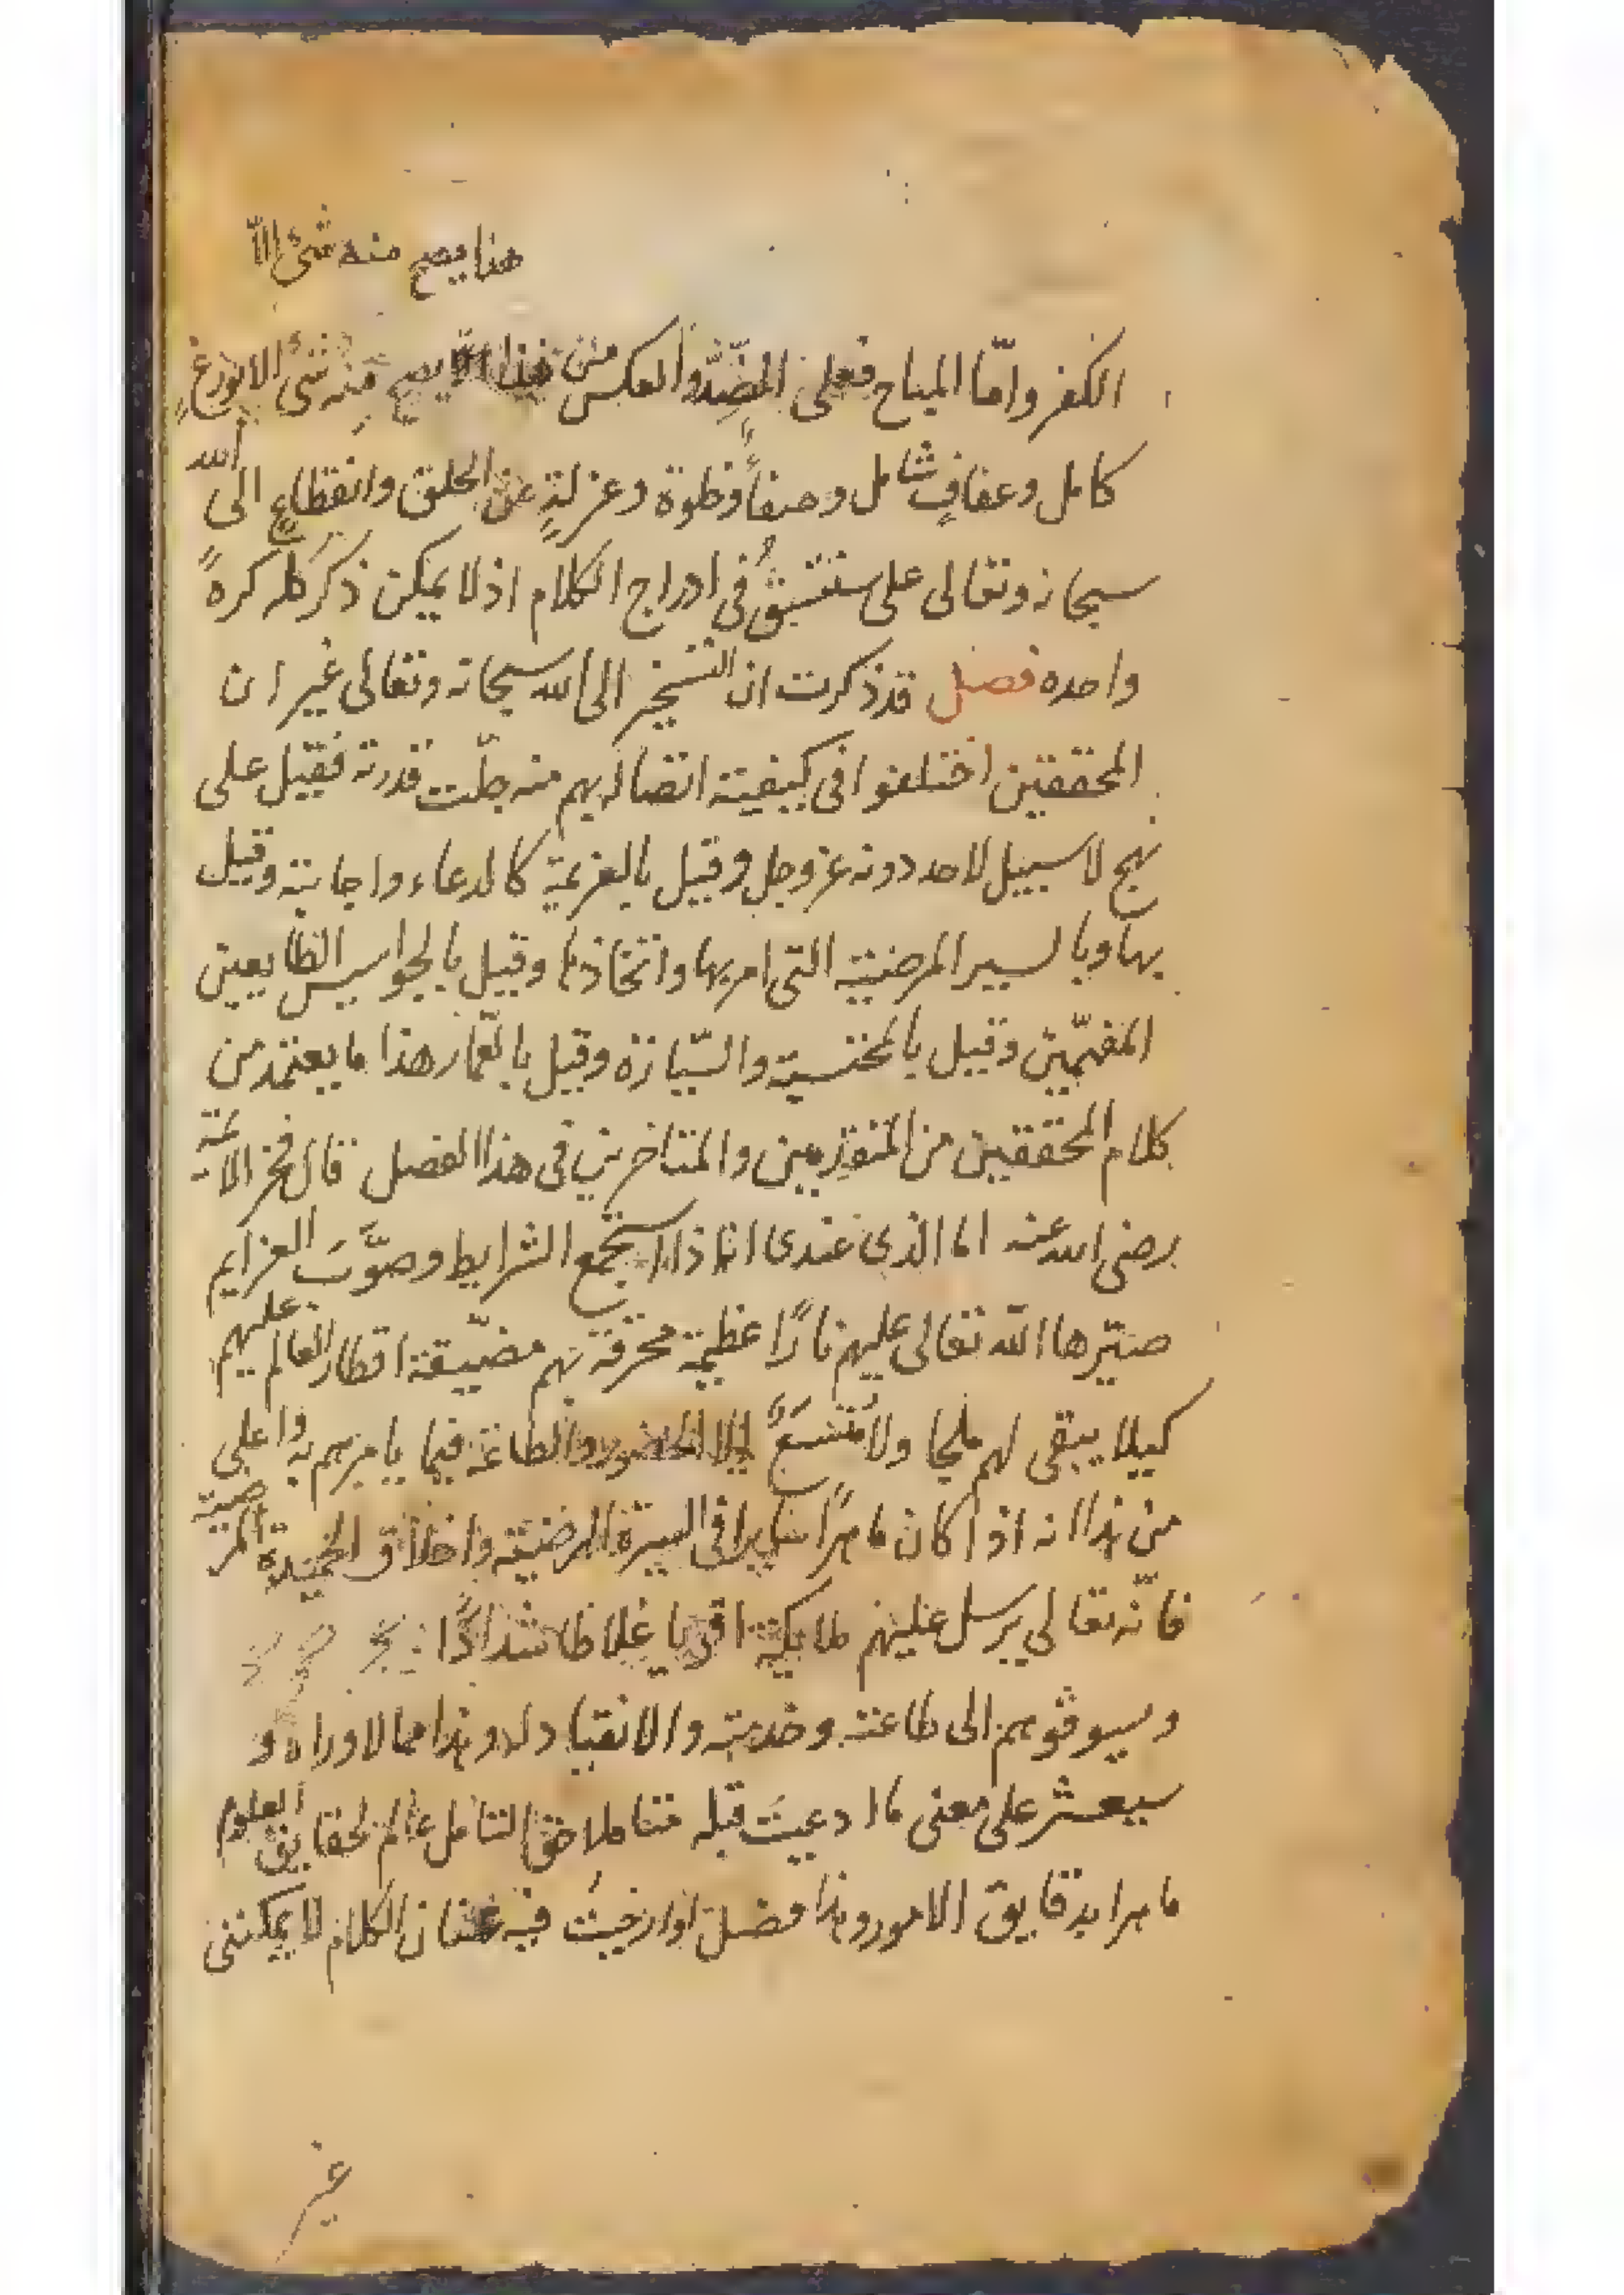 هنا يصح منه شئ الّا
الكفر وامّا المباح فعلى الضّدّ والعكس من هذا لا يصح منه شئ الا بورعٍ
كامل وعفافٍ شامل وصفاءٍ وخلوة وعزلةٍ عن الخلق وانقطاعٍ الى الله
سبحانه وتعالى على ستتبينُ فى ادراج الكلام اذ لا يمكن ذكر كله كرةً
واحده فصل قد ذكرت ان التسخير الى الله سبحانه وتعالى غير ان
المحققين اختلفوا فى كيفيته ايصاله بهم منه جلّت قدرته فقيل على
نهج لا سبيل لاحد دونه عز وجل وقيل بالعزيمة كالدعاء واجابته وقيل
بها وبالسير المرضيته التى امر بها واتخاذها وقيل بالجواسيس الطايعين
المفهّمين وقيل بالمحتسبة والسّيارة وقيل بالعّمار هذا ما يعتمد من
كلام المحققين من المتقدمين والمتاخرين فى هذا الفصل قال فخر الائمة
رضى الله عنه اما الذى عندى انه اذا استجمع الشرايط وصوَّبَ العزايم
صيّرها اللّه تعالى عليهم نارًا عظيمة محرقة بهم مضيّيقة اقطار العالم عليهم
كيلا يبقى لهم ملجا ولا متسعً الا الحضور والطاعة فيما يامرهم به واعلى
من هذا انه اذا كان ماهرًا سايرا فى السيرة المرضيّة واخلاق الحميدة المرضية
فانّه تعالى يرسل عليهم ملايكة اقويا غلاظا شدادًا
ويسوقوهم الى طاعته وخدمته والانقياد له وهذا مما لا وراه و
سيعثر على معنى ما ادعيتَ قبله متاملا حق التامل عالم لحقايق العلوم
ماهرا بدقايق الامور وهذا فصل لو ارخيتُ فيه عنان الكلام لا يمكننى
غير